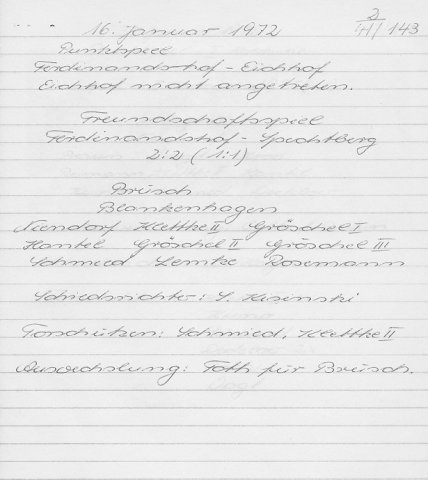 16. Januar 1972
2/41/143
Punktspiel
Ferdinandshof - Eichhof
Eichhof nicht angetreten.
Freundschaftsspiel
Ferdinandshof - Spechtberg
2:2 (1:1)
Brüsch
Blankenhagen
Niendorf Klettke II Gröschel I
Hantel Gröschel II Gröschel III
Schmied Lemke Rosemann
Schiedsrichter: S. Kisinski
Torschützen: Schmied, Klettke II
Auswechslung: Foth für Brüsch.